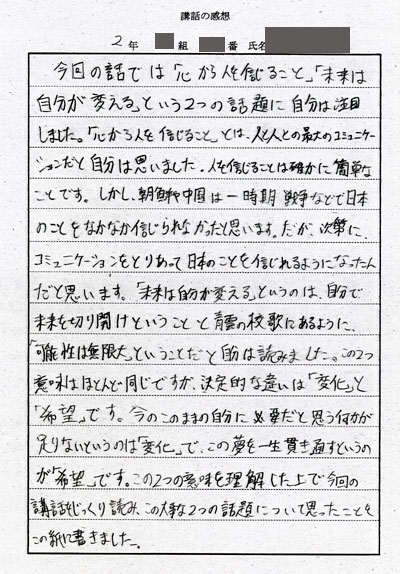 講話の感想
2年 組 番 氏名
今回の話では「心から人を信じること」「未来は
自分が変える」という2つの話題に自分は注目
しました。「心から人を信じること」とは、人と人との最大のコミュニケー
ションだと自分は思いました。人を信じることは確かに簡単な
ことです。しかし、朝鮮や中国は一時期戦争などで日本
のことをなかなか信じられなかったと思います。だが、次第に、
コミュニケーションをとりあって日本のことを信じれるようになったん
だと思います。「未来は自分が変える」というのは、自分で
未来を切り開けということと青雲の校歌にあるように、
「可能性は無限大」ということだと自分は読みました。この2つ
意味はほとんど同じですが、決定的な違いは「変化」と
「希望」です。今のこのままの自分に必要だと思う何かが
足りないというのは「変化」で、この夢を一生貫き通すというの
が「希望」です。この2つの意味を理解した上で今回の
講話をじっくり読み、この大事な2つの話題について思ったことを
この紙に書きました。